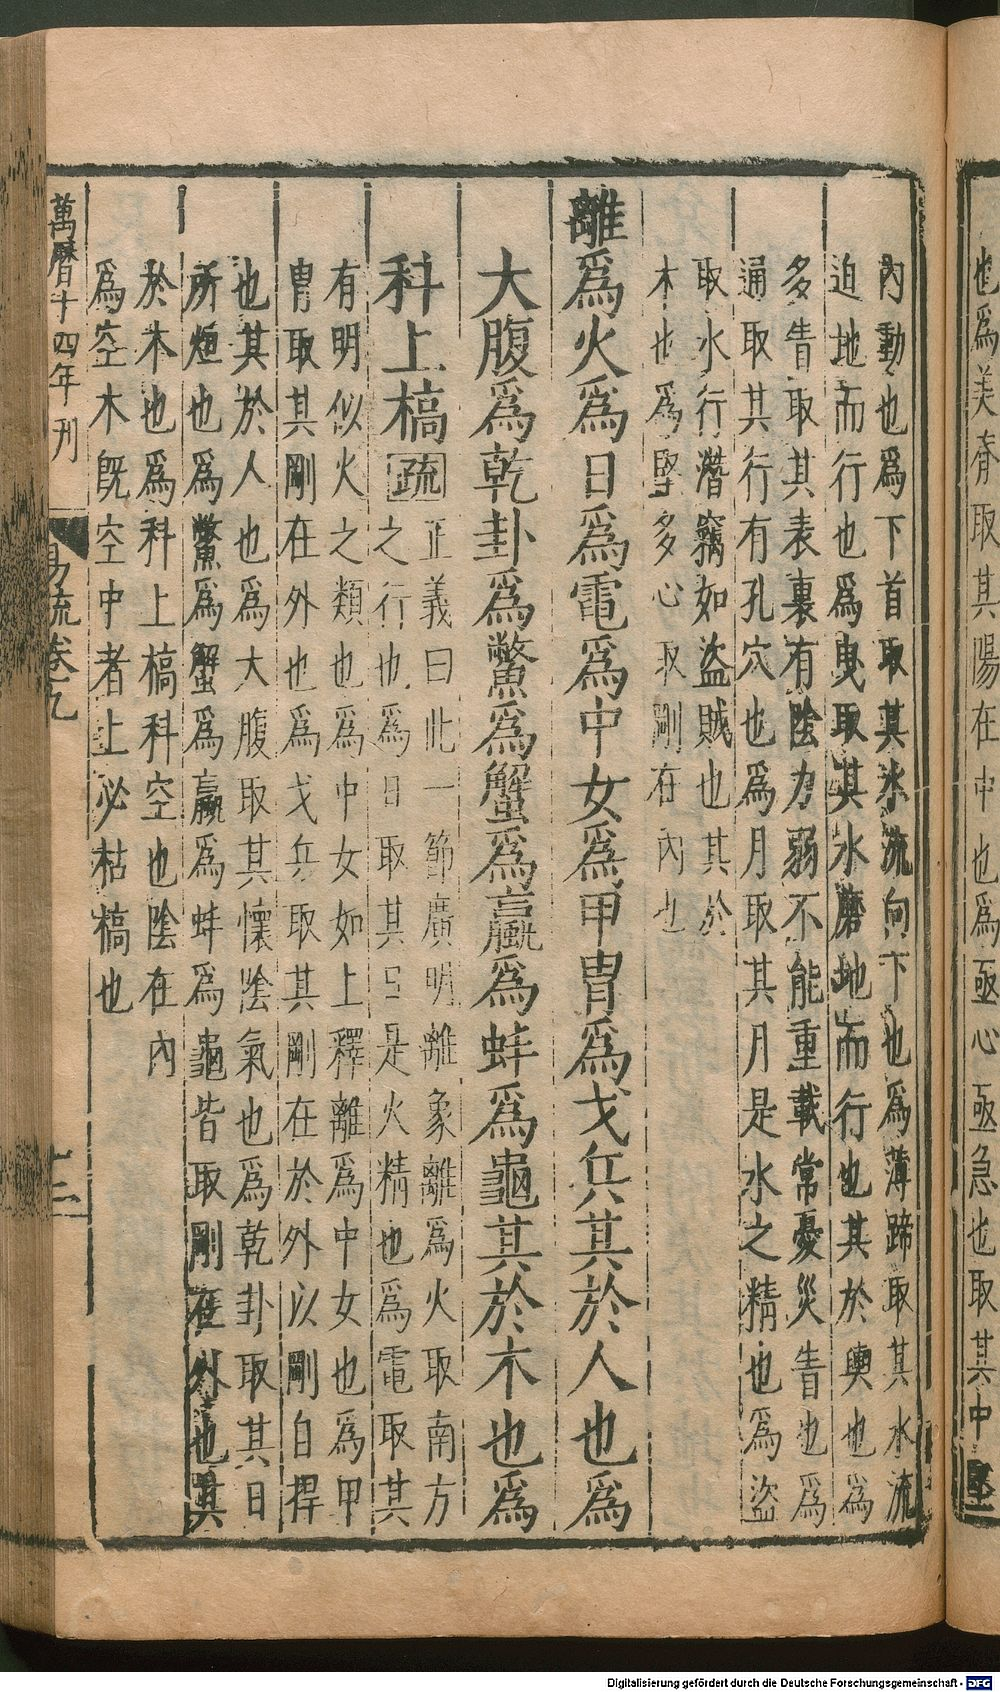 也爲美脊取其陽在中也爲亟心亟急也取其中堅
內動也爲下首取其水流向下也爲薄蹄取其水流
迫地而行也爲曳取其水磨地而行也其於輿也爲
多眚取其表裏有陰力弱不能重載常憂災眚也爲
通取其行有孔穴也爲月取其月是水之精也爲盜
取水行潛竊如盜賊也其於
木也爲堅多心取剛在內也
離爲火爲日爲電爲中女爲甲冑爲戈兵其於人也爲
大腹爲乾卦爲鱉爲蟹爲蠃爲蚌爲龜其於木也爲
科上槁疏正義曰此一節廣明離象離爲火取南方
之行也爲日取其日是火精也爲電取其
有明似火之類也爲中女如上釋離爲中女也爲甲
冑取其剛在外也爲戈兵取其剛在於外以剛自捍
也其於人也爲大腹取其懷陰氣也爲乾卦取其日
所烜也爲鱉爲蟹爲蠃爲蚌爲龜皆取剛在外也其
於木也爲科上槁科空也陰在內
爲空木旣空中者上必枯槁也
萬曆十四年刊
易疏卷九
十二
Digitalisierung gefördert durch die Deutsche Forschungsgemeinschaft - DFG